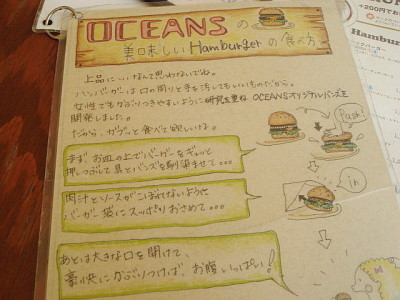 OCEANSの
美味しいHamburgerの食べ方
上品にいいなんて思わないでね。
ハンバーガーは口の周りと手を汚してもいいものだから。
女性でもかぶりつきやすいように研究を重ね OCEANSオリジナルバンズを
開発しました。
だから、ガブッと食べて欲しいな。
まず、お皿の上でバーガーをギュッと
押しつぶして具とバンズを馴染ませて...
Push!
肉汁とソースがこぼれないように
バーガー袋にスッポリおさめて...
in
あとは大きな口を開けて、
豪快にかぶりつけば、お腹いっぱーい!
+200円で
Hambur